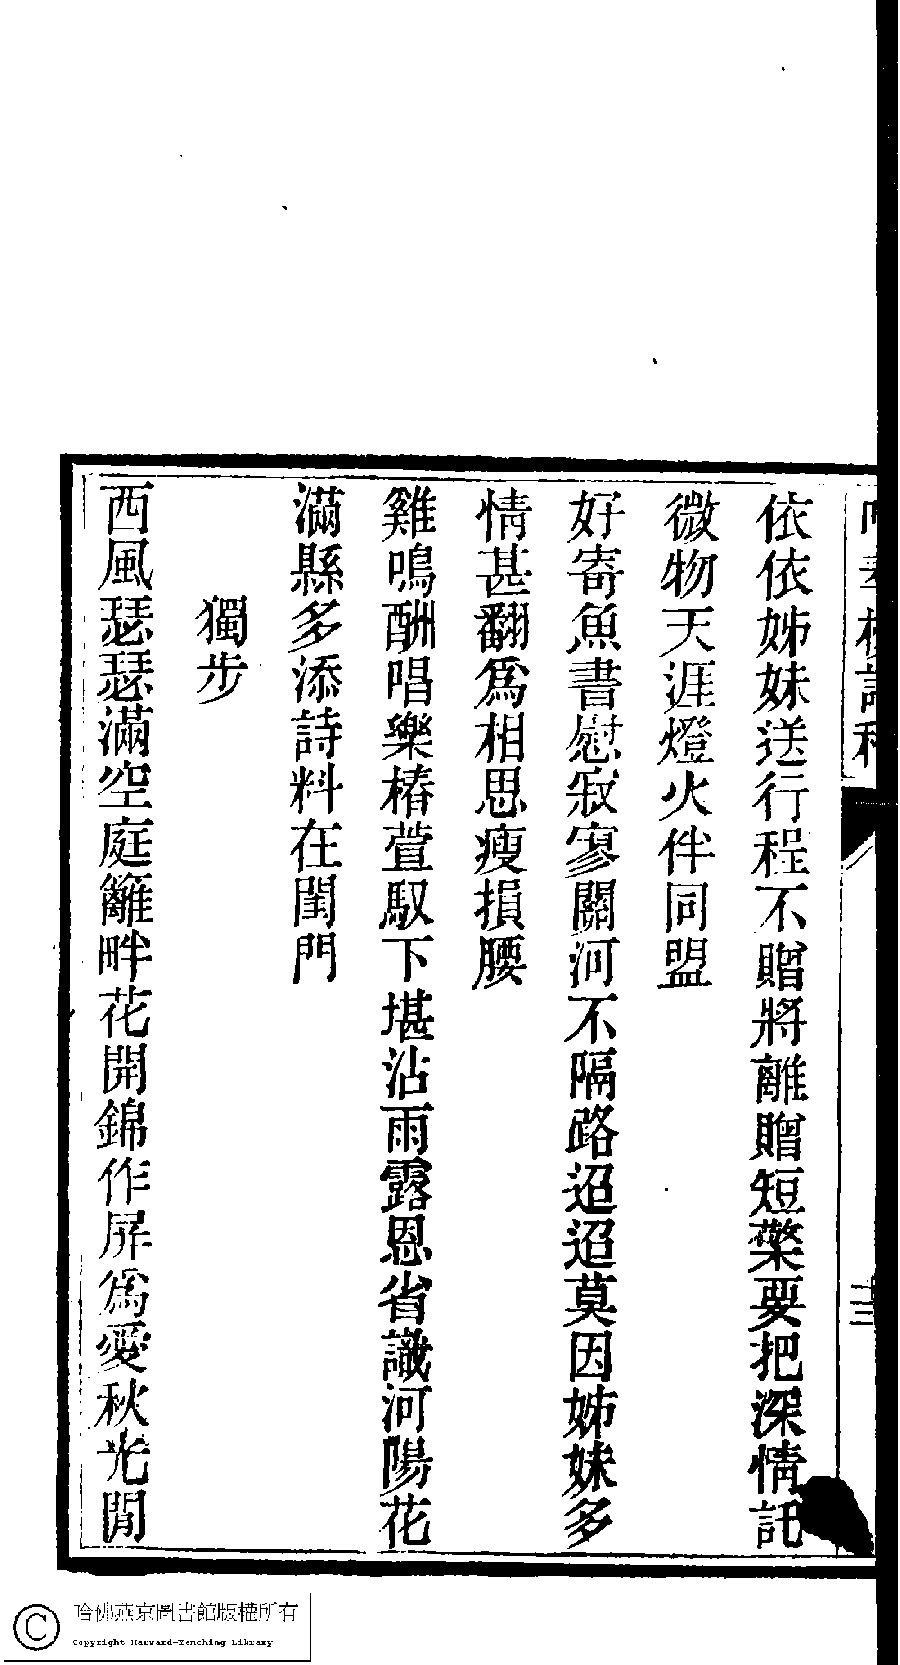 依依姊妹送行程不贈將離贈短檠要把深情託
微物天涯燈火伴同盟
好寄魚書慰寂寥關河不隔路迢迢莫因姊妹多
情甚翻爲相思瘦損腰
雞鳴酬唱樂椿萱馭下堪沾雨露恩省識河陽花
滿縣多添詩料在閨門
獨步
西風瑟瑟滿空庭籬畔花開錦作屏爲愛秋光閒
十三
哈佛燕京圖書館版權所有
Copyright Harvard-Yenching Library